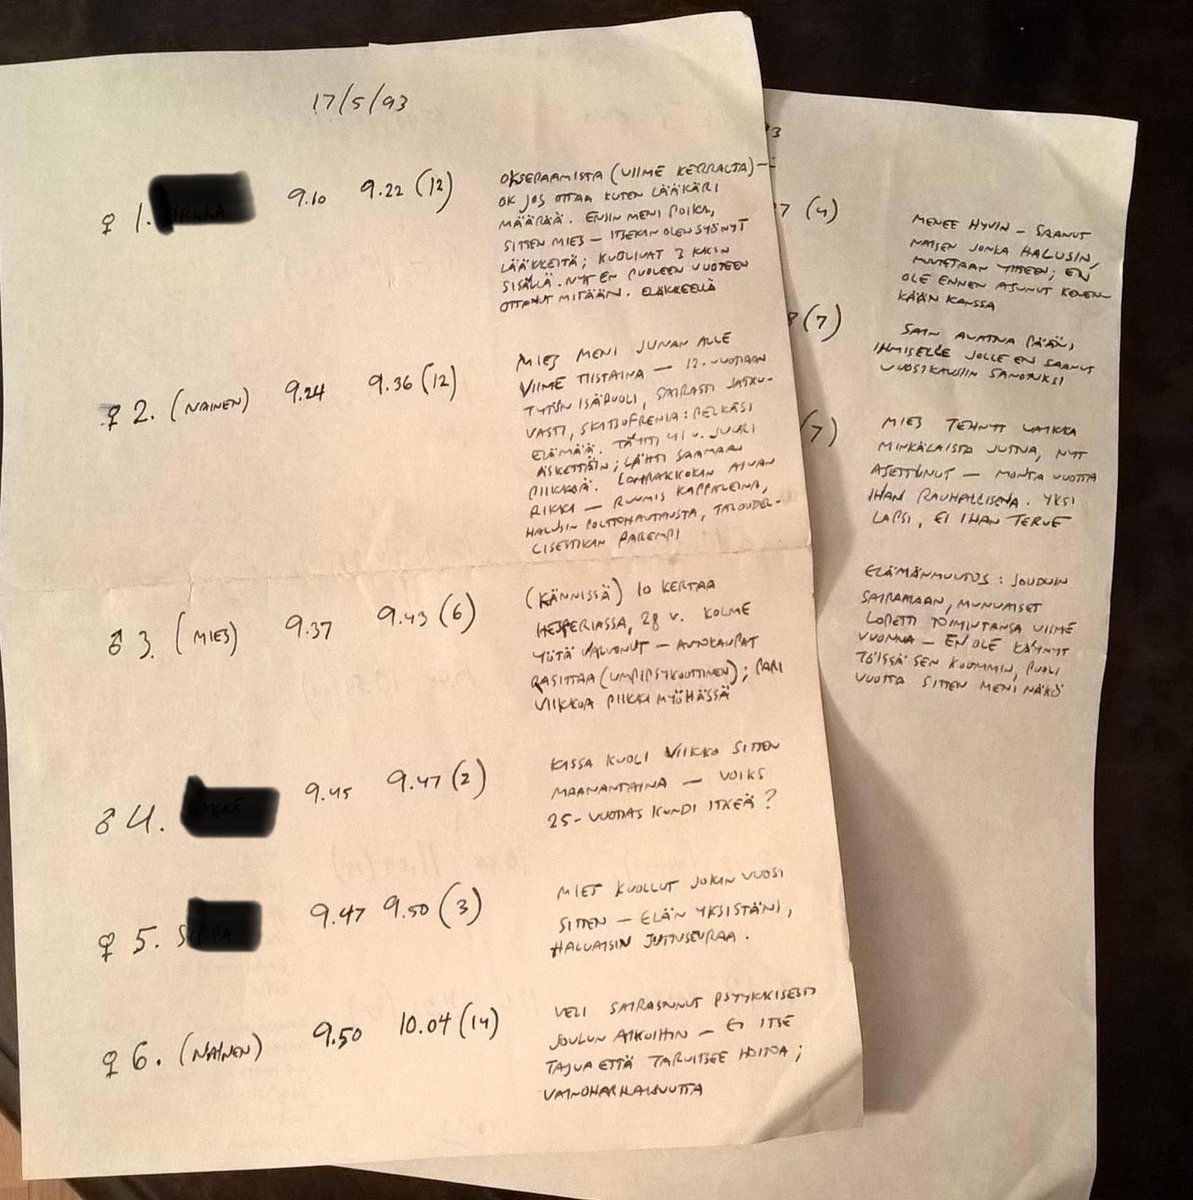 17/5/93
♀ 1. 9.10 9.22 (12)
OKSEPAAMISTA (VIIME KERRALTA) –
OK JOS OTTAA KUTEN LÄÄKÄRI
MÄÄRÄÄ. ENSIN MENI POIKA,
SITTEN MIES – ITSEKIN OLEN SYÖNYT
LÄÄKKEITÄ; KUOLIVAT 3 KKN
SISÄLLÄ. NYT EN PUOLEEN VUOTEEN
OTTANUT MITÄÄN. ELÄKKEELLÄ
♀ 2. (NAINEN) 9.24 9.36 (12)
MIES MENI JUNAN ALLE
VIIME TIISTAINA – 12-VUOTIAAN
TYTÖN ISÄPUOLI, SAIRASTI JATKU-
VASTI, SKITSOFRENIA: PELKÄSI
ELÄMÄÄ. TÄYTTI 41 V. JUURI
ÄSKETTÄIN; LÄHTI SAAMAAN
PIIKKIÄ. LOMPAKKOKIN AIVAN
RIKKI – RUUMIS KAPPALEINA,
HALUSIN POLTTOHAUTAUSTA, TALOUDEL-
LISESTIKIN PAREMPI
♂ 3. (MIES) 9.37 9.43 (6)
(KÄNNISSÄ) 10 KERTAA
HESPERIASSA, 28 V. KOLME
YÖTÄ VALVONUT – AUTOKAUPAT
RASITTAA (UMPIPSYKOOTTINEN); PARI
VIIKKOA PIIKKI MYÖHÄSSÄ
♂ 4. 9.45 9.47 (2)
KISSA KUOLI VIIKKO SITTEN
MAANANTAINA – VOIKS
25-VUOTIAS KUNDI ITKEÄ?
♀ 5. 9.47 9.50 (3)
MIES KUOLLUT JOKIN VUOSI
SITTEN – ELÄN YKSISTÄNI,
HALUAISIN JUTTUSEURAA.
♀ 6. (NAINEN) 9.50 10.04 (14)
VELI SAIRASTUNUT PSYYKKISESTI
JOULUN AIKOIHIN – EI ITSE
TAJUA ETTÄ TARVITSEE HOITOA;
VAINOHARHAISUUTTA
3
7 (4)
MENEE HYVIN – SAANUT
NAISEN JONKA HALUSIN,
MUUTETAAN YHTEEN; EN
OLE ENNEN ASUNUT KENEN-
KÄÄN KANSSA
8 (7)
SAIN AVATTUA PÄÄNI
IHMISELLE JOLLE EN SAANUT
VUOSIKAUSIIN SANOTUKSI
(7)
MIES TEHNYT VAIKKA
MINKÄLAISTA JUTTUA, NYT
ASETTUNUT – MONTA VUOTTA
IHAN RAUHALLISENA. YKSI
LAPSI, EI IHAN TERVE
ELÄMÄNMUUTOS: JOUDUIN
SAIRAALAAN, MUNUAISET
LOPETTI TOIMINTANSA VIIME
VUONNA – EN OLE KÄYNYT
TÖISSÄ SEN KOOMMIN, PUOLI
VUOTTA SITTEN MENI NÄKÖ